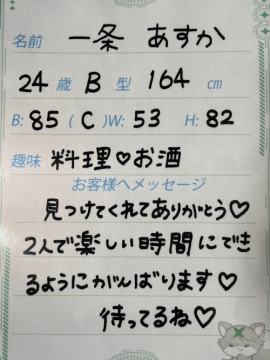 名前 一条 あすか
24歳 B型 164cm
B: 85 (C) W: 53 H: 82
趣味 料理♡お酒
お客様へメッセージ
見つけてくれてありがとう♡
2人で楽しい時間にでき
るようにがんばります♡
待ってるね♡